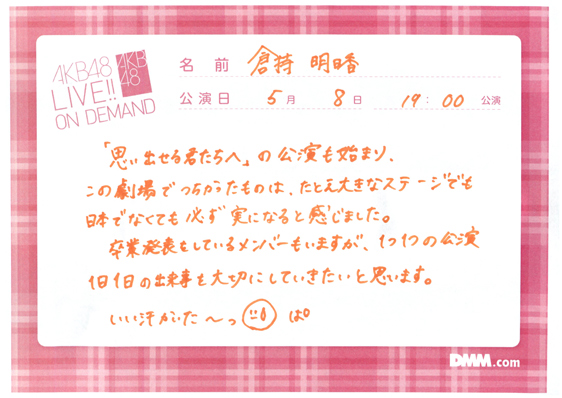 AKB48
LIVE!!
ON DEMAND
AKB
48
名前 倉持 明日香
公演日 5月 8日 19:00 公演
「思い出せる君たちへ」の公演も始まり、
この劇場でつちかったものは、たとえ大きなステージでも
日本でなくても必ず実になると感じました。
卒業発表をしているメンバーもいますが、1つ1つの公演
1日1日の出来事を大切にしていきたいと思います。
いい汗かいた〜っ ぱ
DMM.com